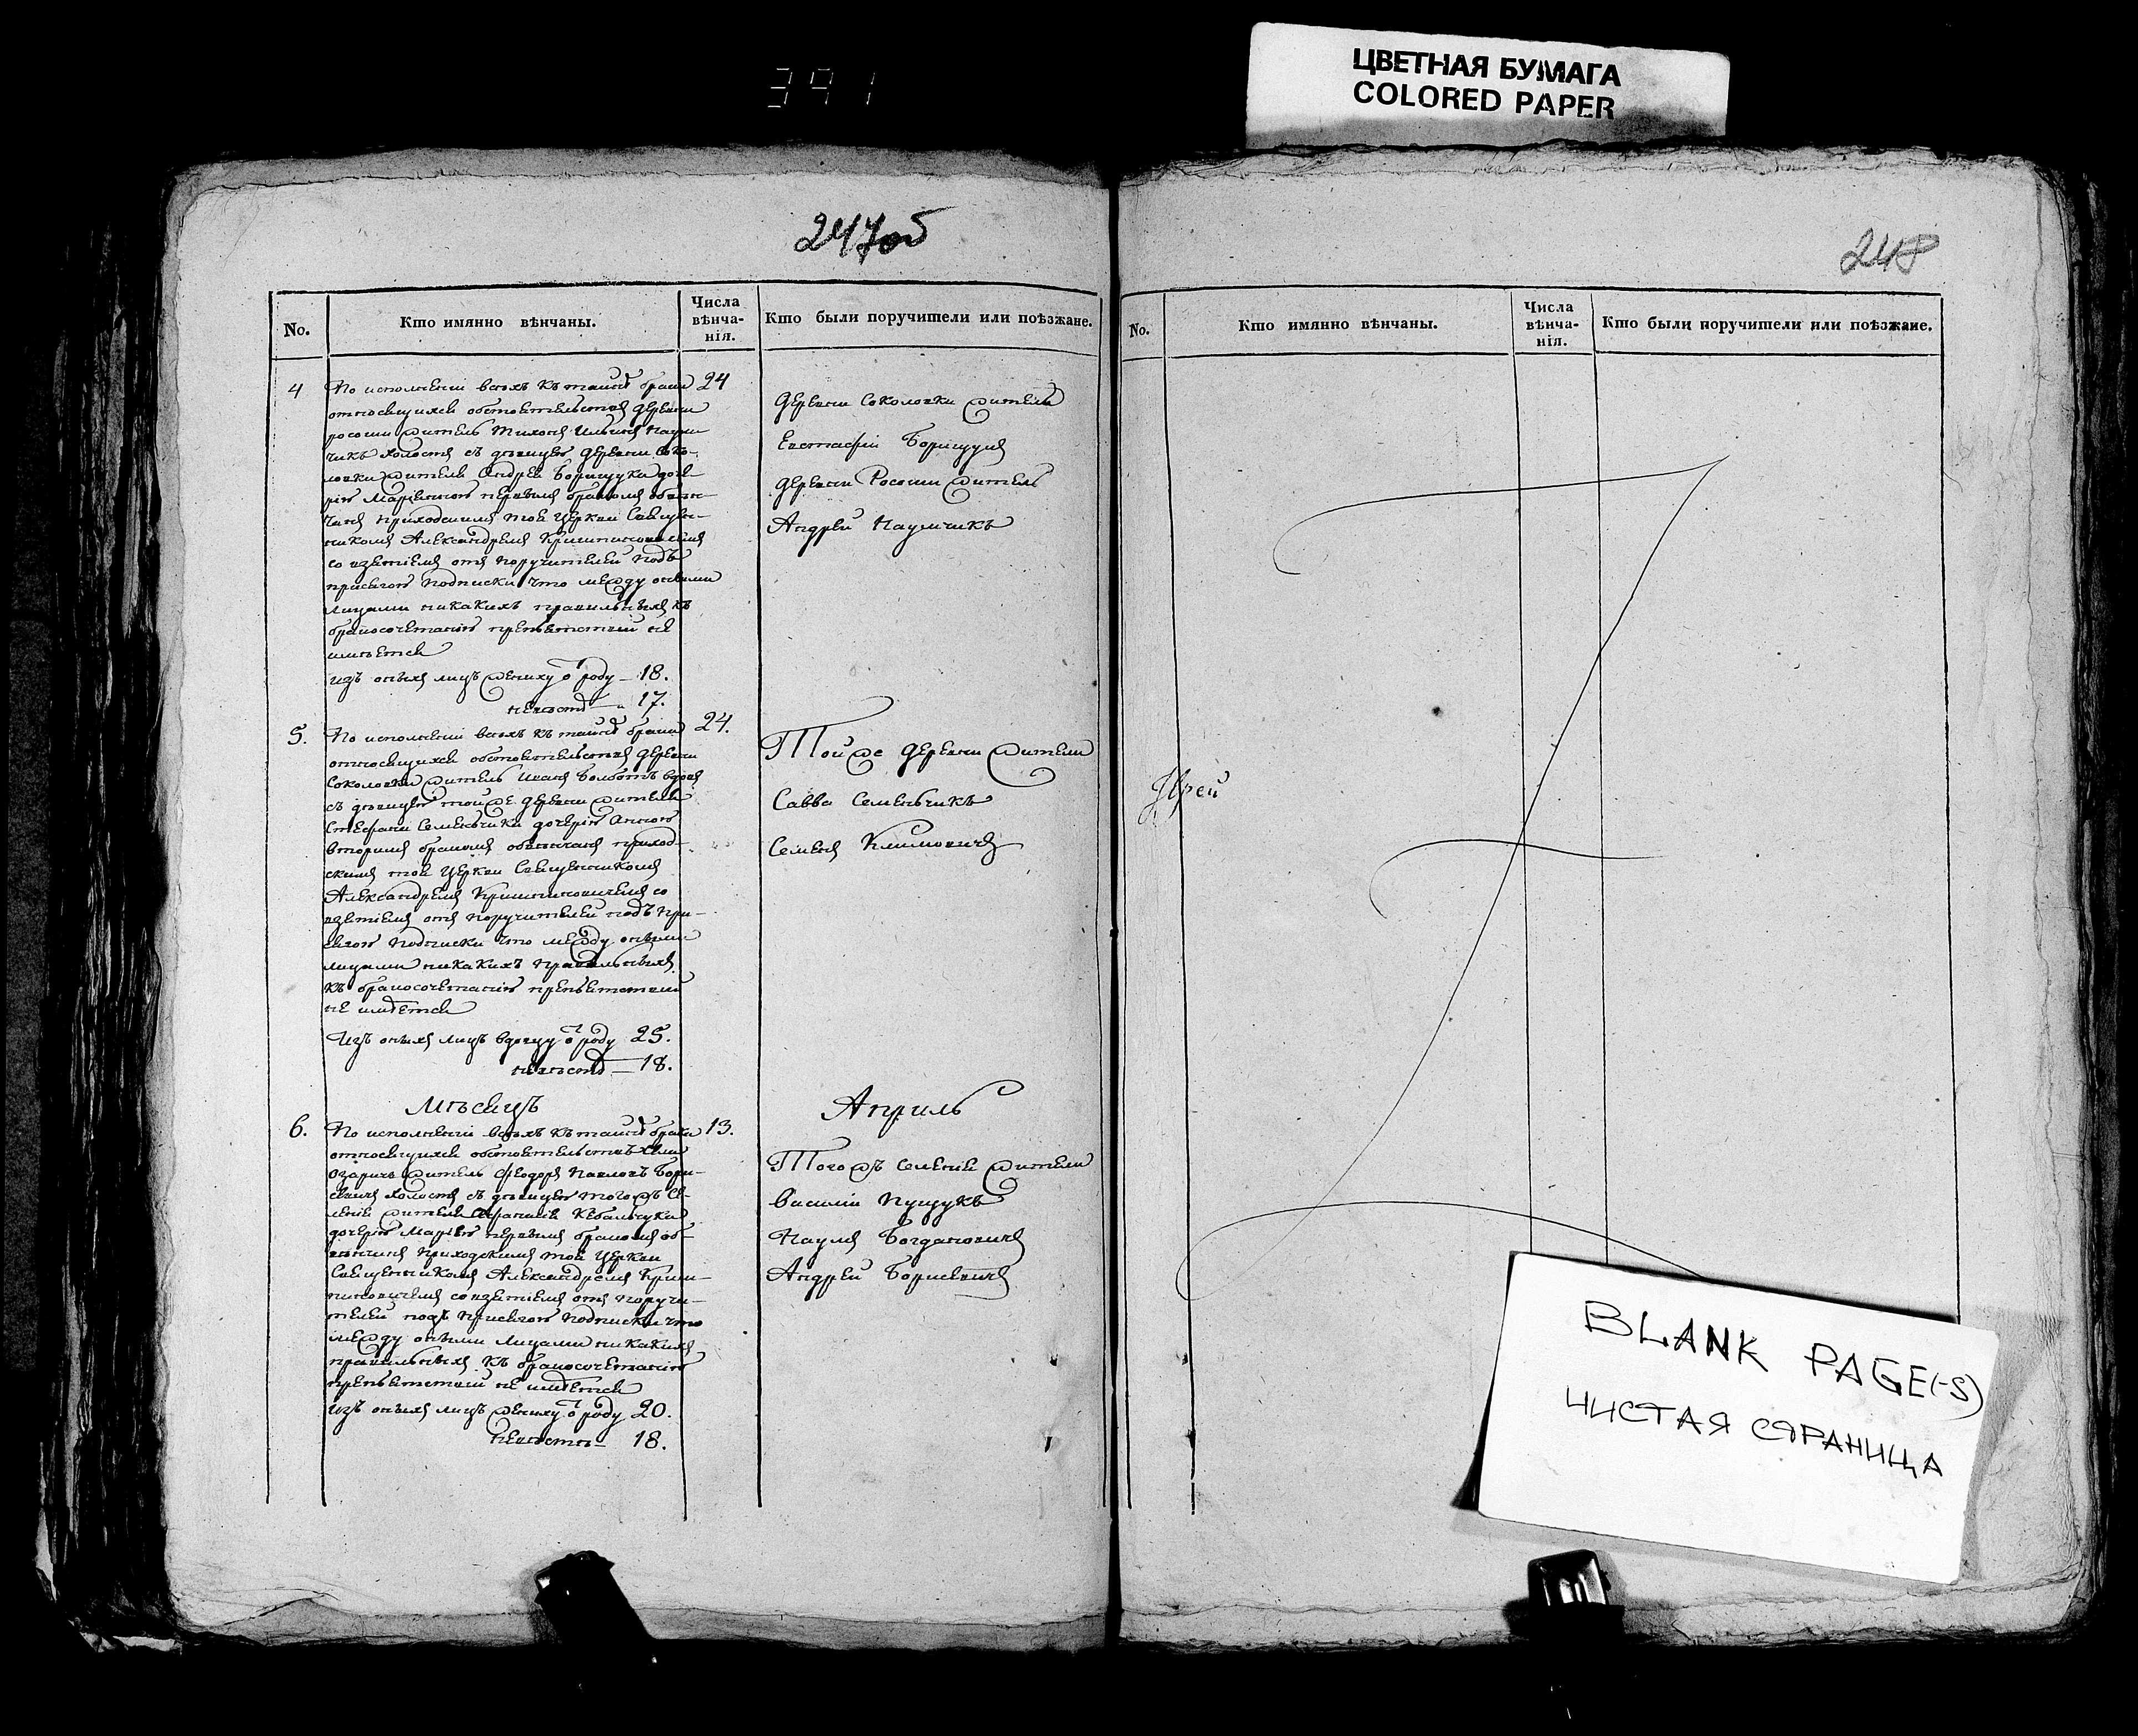 391
ЦВЕТНАЯ БУМАГА
COLORED PAPER
247об
No.
Кто имянно вѣнчаны.
Числа
вѣнча-
нія.
Кто были поручители или поѣзжане.
4
По исполненіи всѣхъ къ таинст брака
24
относящихся обстоятельствъ деревни
росоши житель Тихонъ Ильинъ Наум
чикъ холостъ съ дѣвицею деревни Соко-
ловки жителя Андрея Борищука доче
рію Маріанною первымъ бракомъ обвѣн-
чанъ приходскимъ той Церкви Священ-
никомъ Александромъ
со взятіемъ отъ поручителей подъ
присягою подписки что между оными
лицами никакихъ правильныхъ къ
бракосочетанію препятствій не
имѣется
изъ оныхъ лицъ жениху о роду 18.
невѣстѣ 17.
деревни Соколовки жители
Евстафій Борищукъ
деревни Росоши житель
Андрей Наумчикъ
5.
По исполненіи всѣхъ къ таинст брака
24.
относящихся обстоятельствъ деревни
Соколовки житель Иванъ Болботъ вдовъ
съ дѣвицею тойже деревни жителя
Стефана Семенчика дочерію Анною
вторымъ бракомъ обвѣнчанъ приход-
скимъ той Церкви Священникомъ
Александромъ со
взятіемъ отъ поручителей подъ при-
сягою подписки что между оными
лицами никакихъ правильныхъ
къ бракосочетанію препятствій
не имѣется
Изъ оныхъ лицъ вдовцу о роду 25.
невѣстѣ 18.
Тойже деревни жители
Савва Семенчикъ
Семенъ Климовичъ
Мѣсяцъ
Априль
6.
По исполненіи всѣхъ къ таинст брака
13.
относящихся обстоятельствъ села
Озаричъ житель Феодоръ Павловъ Бори-
севичъ холостъ съ дѣвицею тогожъ се-
ленія жителя
дочерію Маріею первымъ бракомъ об-
вѣнчанъ приходскимъ той Церкви
Священникомъ Александромъ
со взятіемъ отъ поручи-
телей подъ присягою подписки что
между оными лицами никакихъ
правильныхъ къ бракосочетанію
препятствій не имѣется
изъ оныхъ лицъ жениху о роду 20.
невѣстѣ 18.
Тогожъ селенія жители
Василій Пущукъ
Наумъ Богдановичъ
Андрей Борисевичъ
248
No.
Кто имянно вѣнчаны.
Числа
вѣнча-
нія.
Кто были поручители или поѣзжане.
Ярей
BLANK PAGE(-S)
ЧИСТАЯ СТРАНИЦА